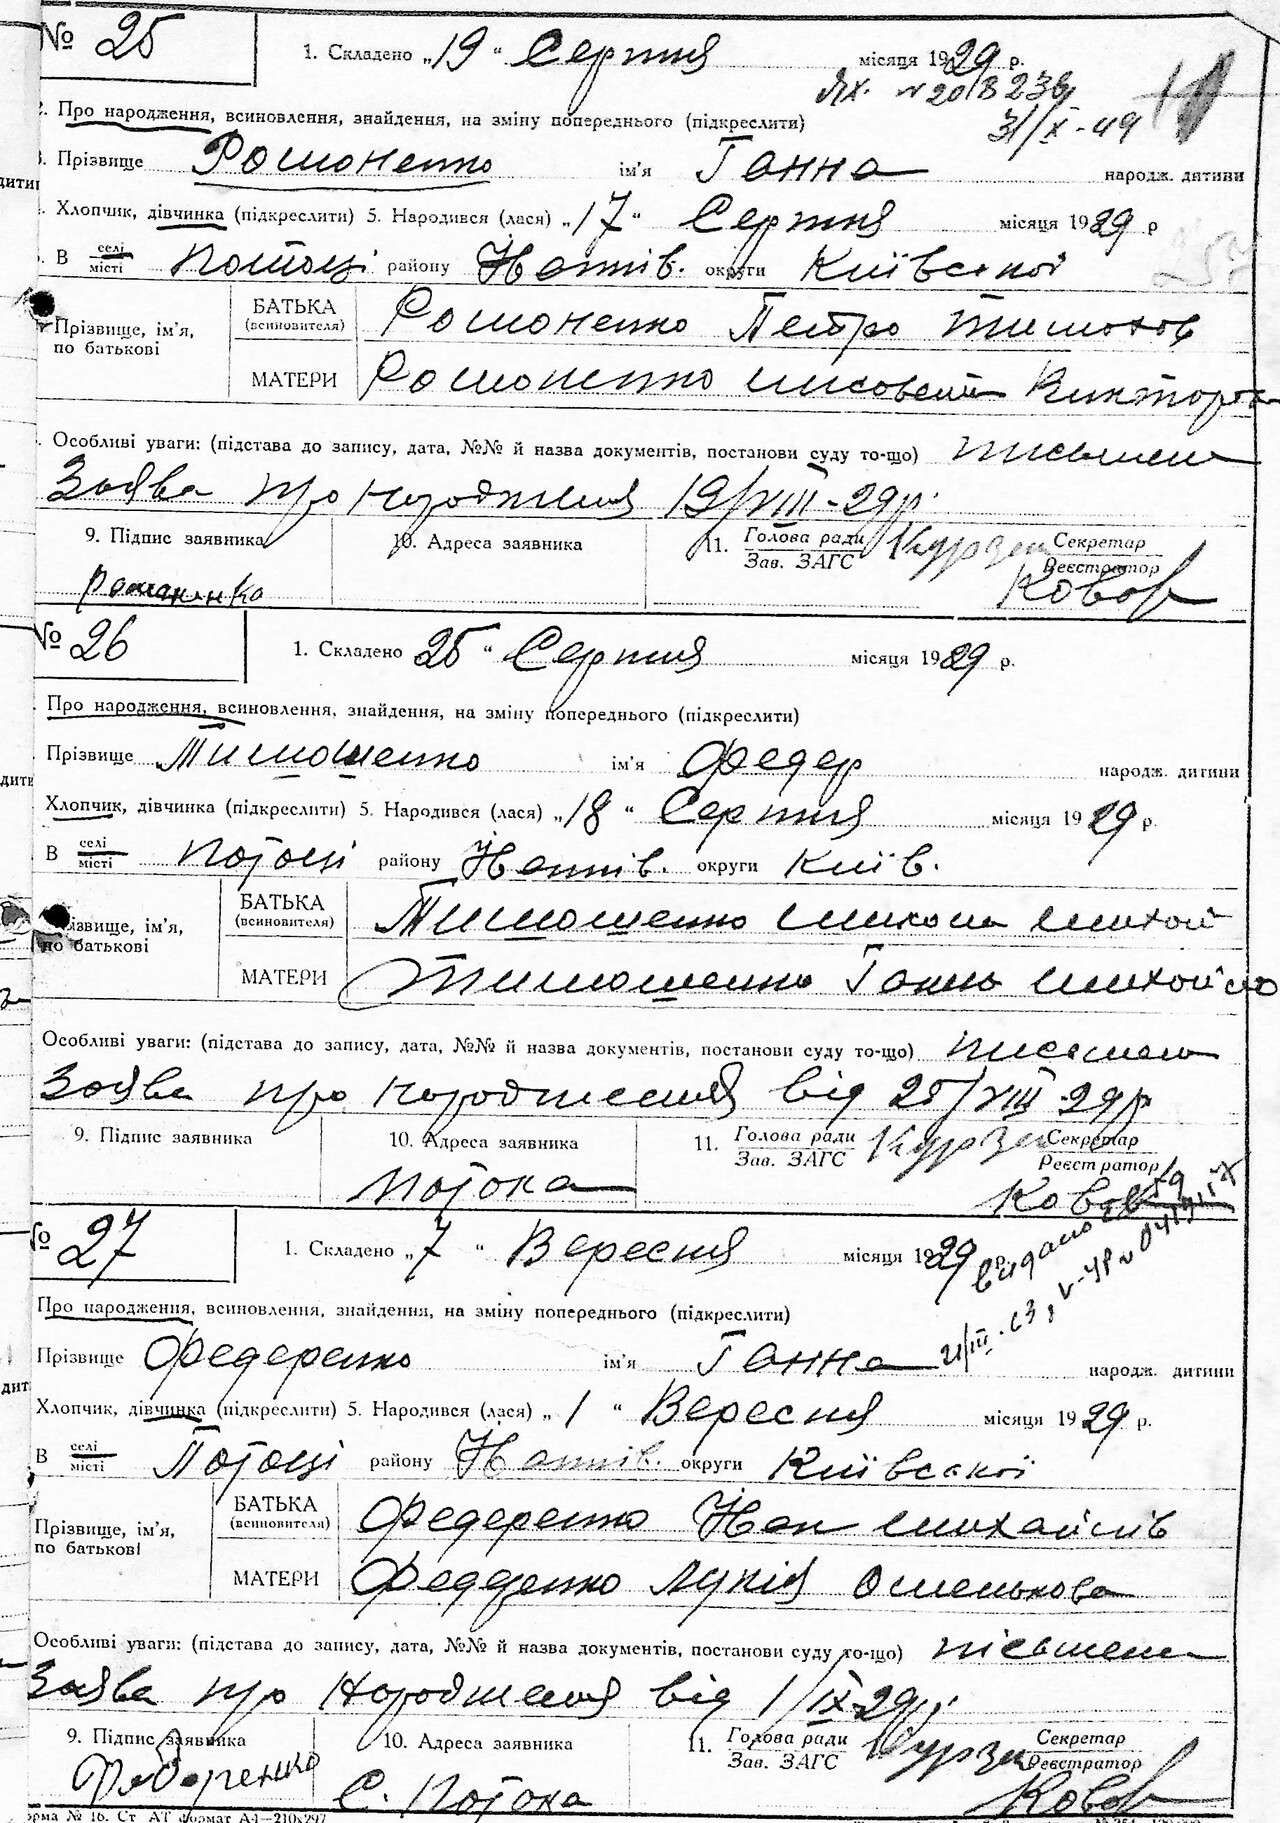 № 25
1. Складено „19“ Серпня місяця 1929 р.
31/X-49
Про народження, всиновлення, знайдення, на зміну попереднього (підкреслити)
Прізвище Романенко ім'я Ганна народж. дитини
Хлопчик, дівчинка (підкреслити) 5. Народився (лася) „17“ Серпня місяця 1929 р
В селі/місті Потоці району округи Київської
Прізвище, ім'я, по батькові
БАТЬКА (всиновителя) Романенко Петро Тимохов
МАТЕРИ Романенко
Особливі уваги: (підстава до запису, дата, №№ й назва документів, постанови суду то-що) письмена
Заява про народження 19/VIII-29р.
9. Підпис заявника 10. Адреса заявника 11. Голова ради/Зав. ЗАГС Секретар/Реєстратор
Романенка
№ 26
1. Складено 25“ Серпня місяця 1929 р.
Про народження, всиновлення, знайдення, на зміну попереднього (підкреслити)
Прізвище Тимошенко ім'я Федер народж. дитини
Хлопчик, дівчинка (підкреслити) 5. Народився (лася) „18“ Серпня місяця 1929 р.
В селі/місті Потоці району округи Київ.
Прізвище, ім'я, по батькові
БАТЬКА (всиновителя) Тимошенко Микола Михай
МАТЕРИ Тимошенко Ганна Михайло
Особливі уваги: (підстава до запису, дата, №№ й назва документів, постанови суду то-що) писмена
Заява про народження від 25/VIII-29р
9. Підпис заявника 10. Адреса заявника 11. Голова ради/Зав. ЗАГС Секретар/Реєстратор
Потока
№ 27
1. Складено „7“ Вересня місяця 1929 р.
видано
Про народження, всиновлення, знайдення, на зміну попереднього (підкреслити)
Прізвище Федеренко ім'я Ганна народж. дитини
Хлопчик, дівчинка (підкреслити) 5. Народився (лася) „1“ Вересня місяця 1929 р.
В селі/місті Потоці району округи Київської
Прізвище, ім'я, по батькові
БАТЬКА (всиновителя) Федеренко Іван Михайлів
МАТЕРИ Федденко Лукія Омелькова
Особливі уваги: (підстава до запису, дата, №№ й назва документів, постанови суду то-що) пісьмена
Заява про народження від 1/IX-29р.
9. Підпис заявника 10. Адреса заявника 11. Голова ради/Зав. ЗАГС Секретар/Реєстратор
С. Потока
№ 16. Ст. АТ формат А4—210x297